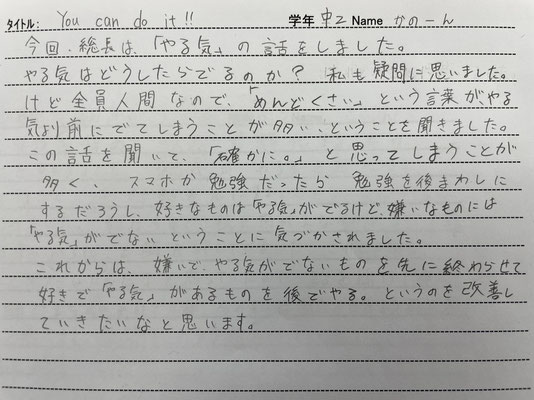 タイトル: You can do it!! 学年 中2 Name かのーん
今回、総長は、「やる気」の話をしました。
やる気はどうしたらでるのか？ 私も疑問に思いました。
けど全員人間なので、「めんどくさい」という言葉が、やる
気より前にでてしまうことが多い、ということを聞きました。
この話を聞いて、「確かに。」と思ってしまうことが
多く、スマホか勉強だったら勉強を後まわしに
するだろうし、好きなものは「やる気」がでるけど、嫌いなものには
「やる気」がでないということに気づかされました。
これからは、嫌いで、やる気がでないものを先に終わらせて
好きで「やる気」があるものを後でやる。というのを改善し
ていきたいなと思います。